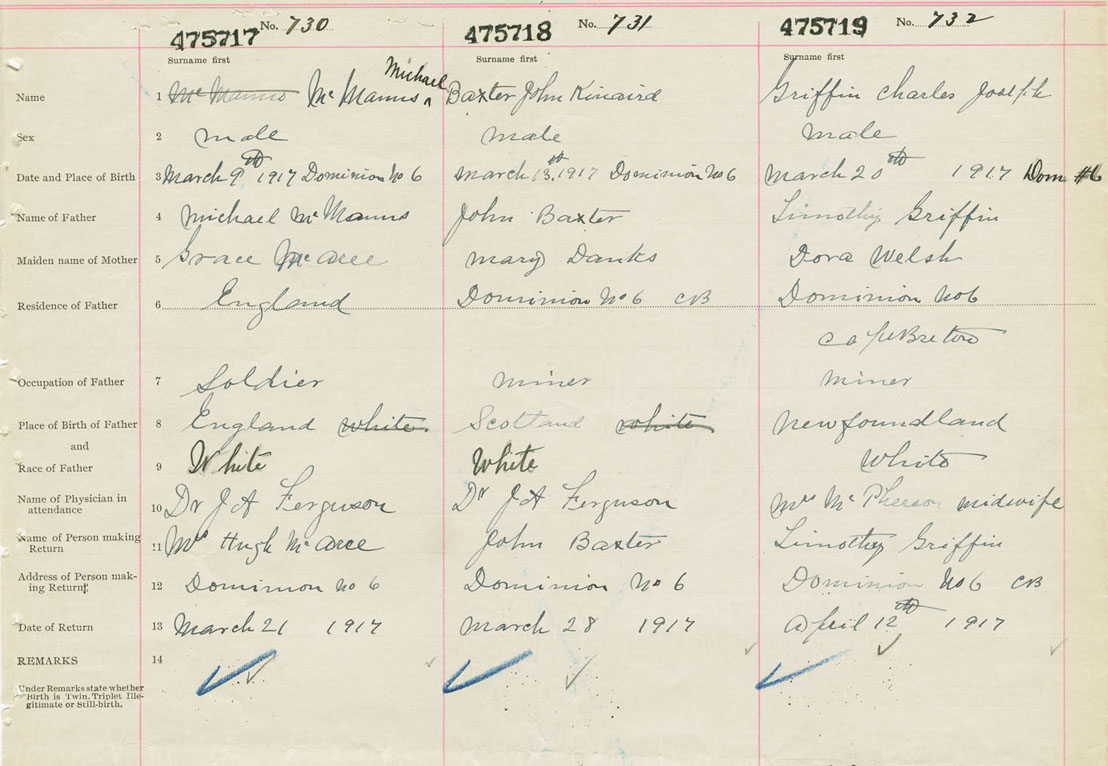 475717 No. 730 475718 No. 731 475719 No. 732
Surname first Surname first Surname first
Michael
Name 1 Mc Manus Mc Manus ^ Baxter John Kinaird Griffin Charles Joseph
Sex 2 male male male
Date and Place of Birth 3 March 9th 1917 Dominion No 6 March 13th, 1917 Dominion No 6 March 20th 1917 Dom #6
Name of Father 4 Michael McManus John Baxter Timothy Griffin
Maiden name of Mother 5 Grace McAree Mary Danks Dora Welsh
Residence of Father 6 England Dominion No 6 CB Dominion No6
Cape Breton
Occupation of Father 7 Soldier miner miner
Place of Birth of Father 8 England white Scotland white Newfoundland
and
Race of Father 9 White White White
Name of Physician in
attendance 10 Dr J A Ferguson Dr J A Ferguson Mrs McPherson midwife
Name of Person making
Return 11 Mrs Hugh McAree John Baxter Timothy Griffin
Address of Person mak-
ing Return 12 Dominion No 6 Dominion No 6 Dominion No 6 CB
Date of Return 13 March 21 1917 March 28 1917 April 12th 1917
REMARKS 14
Under Remarks state whether
Birth is Twin. Triplet Ille-
gitimate or Still-birth.